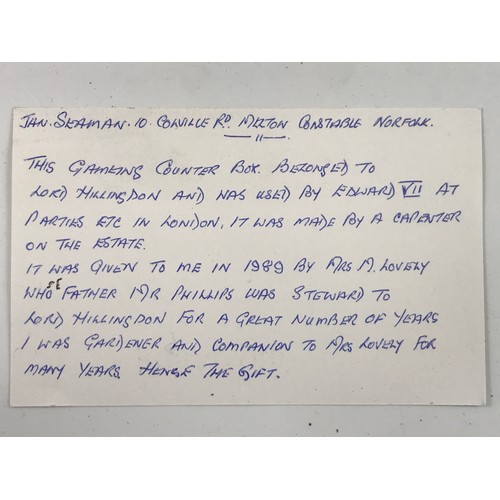 JAN. SEAMAN. 10. COLVILLE RD MELTON CONSTABLE NORFOLK.
THIS GAMEING COUNTER BOX. BELONGED TO
LORD HILLINGDON AND WAS USED BY EDWARD VII AT
PARTIES ETC IN LONDON, IT WAS MADE BY A CAPENTER
ON THE ESTATE.
IT WAS GIVEN TO ME IN 1989 BY MRS M. LOVELY
WHOSE FATHER MR PHILLIPS WAS STEWARD TO
LORD HILLINGDON FOR A GREAT NUMBER OF YEARS
I WAS GARDENER AND COMPANION TO MRS LOVELY FOR
MANY YEARS HENSE THE GIFT.